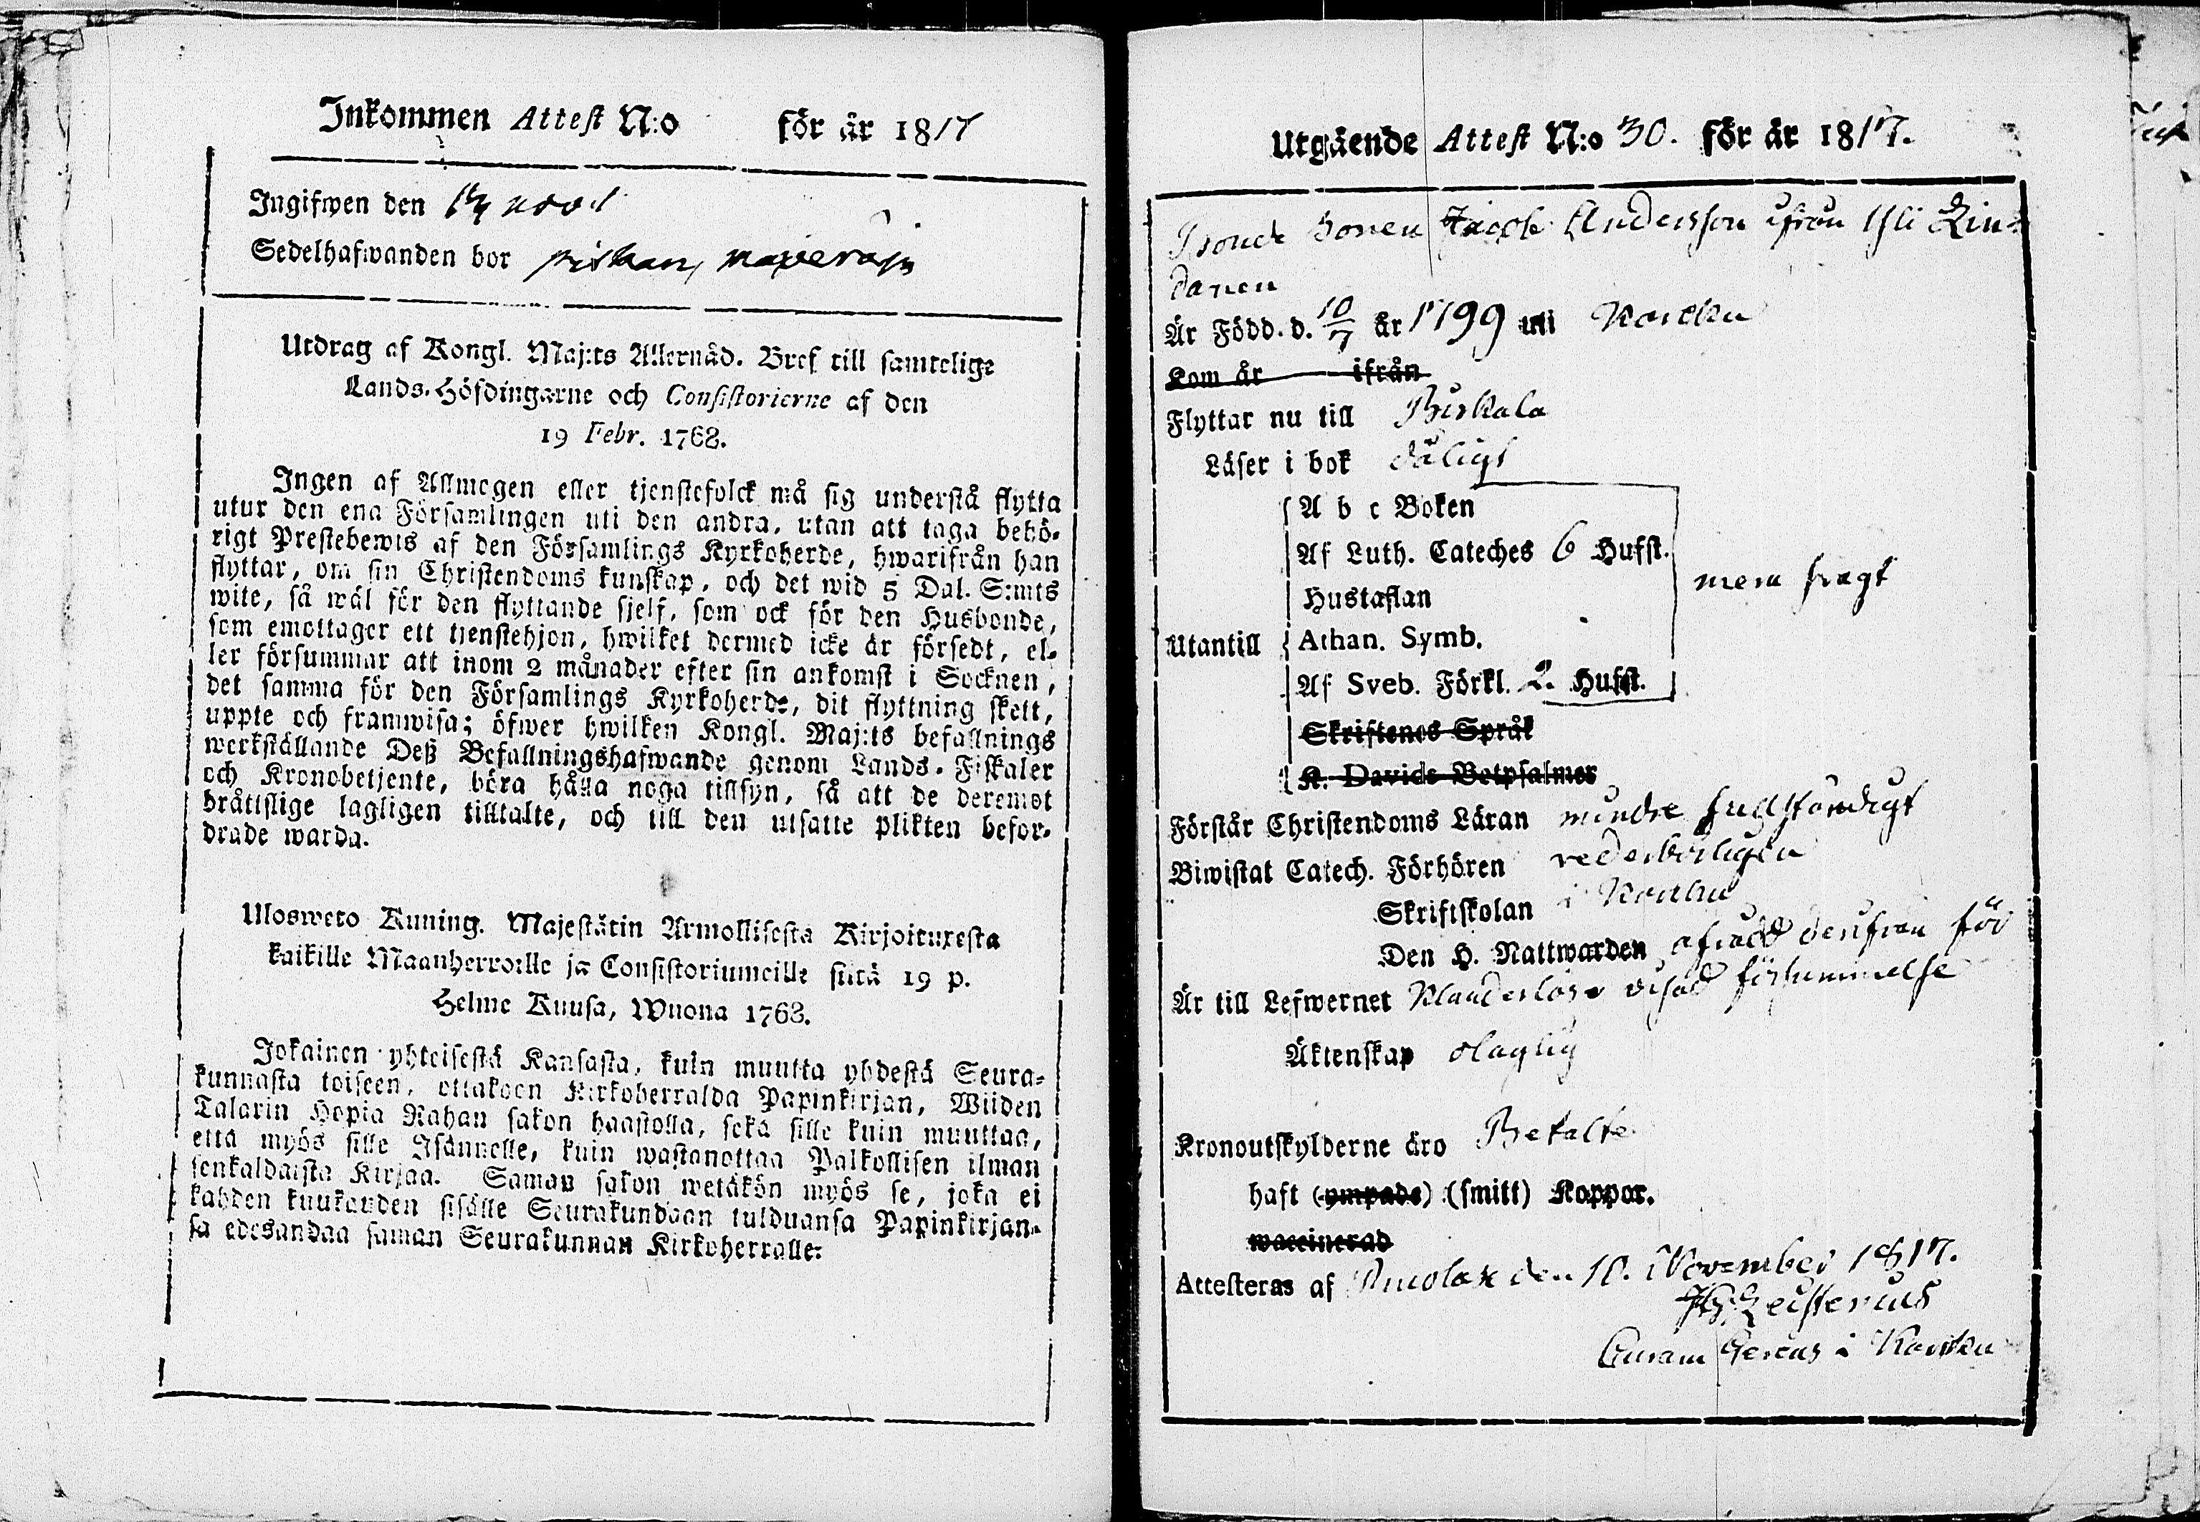 Inkommen Attest N:o för år 1817
Ingifwen den 14 novl
Sedelhafwanden bor
Utdrag af Kongl. Maj:ts Allernåd. Bref till samtelige
Lands-Höfdingarne och Consistorierne af den
19 Febr. 1768.
Ingen af Allmogen eller tjenstefolck må sig understå flytta
utur den ena Församlingen uti den andra, utan att taga behö-
rigt Prestebewis af den Församlings Kyrkoherde, hwarifrån han
flyttar, om sin Christendoms kunskap, och det wid 5 Dal. S:mts
wite, så wäl för den flyttande sjelf, som ock för den Husbonde,
som emottager ett tjenstehjon, hwilket dermed icke är försedt, el-
ler försummar att inom 2 månader efter sin ankomst i Socknen,
det samma för den Församlings Kyrkoherde, dit flyttning skett,
uppte och framwisa; öfwer hwilken Kongl. Maj:ts befallnings
werkställande Deß Befallningshafwande genom Lands-Fiskaler
och Kronobetjente, böra hålla noga tillsyn, så att de deremot
bråttslige lagligen tilltalte, och till den utsatte plikten befor-
drade warda.
Ulosweto Kuning. Majestätin Armollisesta Kirjoituxesta
kaikille Maanherroille ja Consistoriumeille siitä 19 p.
Helme Kuusa, Wuona 1768.
Jokainen yhteisestä Kansasta, kuin muutta yhdestä Seura-
kunnasta toiseen, ottakoon Kirkoherralda Papinkirjan, Wiiden
Talarin Hopia Rahan sakon haastolla, sekä sille kuin muuttaa,
että myös sille Isännelle, kuin wastanottaa Palkollisen ilman
senkaldaista Kirjaa. Saman sakon wetäkön myös se, joka ei
kahden kuukauden sisälle Seurakundaan tulduansa Papinkirjan-
sa edesandaa saman Seurakunnan Kirkoherralle.
Utgående Attest N:o 30. för år 1817.
Bonde Sonen Jacob Andersson ifrån Lin-
danen
Är Född. d. 10/7 år 1799 uti Karcku
Kom år ifrån
Flyttar nu till Birkala
Läser i bok dåligt
A b c Boken
Af Luth. Cateches 6 Hufst.
Hustaflan
mera svagt
Utantill Athan. Symb.
Af Sveb. Förkl. 2. Hufst.
Skriftenes Språk
K. Davids Botpsalmer
Förstår Christendoms Läran mindre fullständigt
Biwistat Catech. Förhören vederbörligen
Skriftskolan i Karcku
Den H. Nattwarden för
Är till Lefwernet Klanderlös försummelse
Äktenskap olaglig
Kronoutskylderne äro Betalte
haft (ympade) (smitt) Koppor.
waccinerad
Attesteras af den 10. November 1817.
Zeisterius
i Karcku